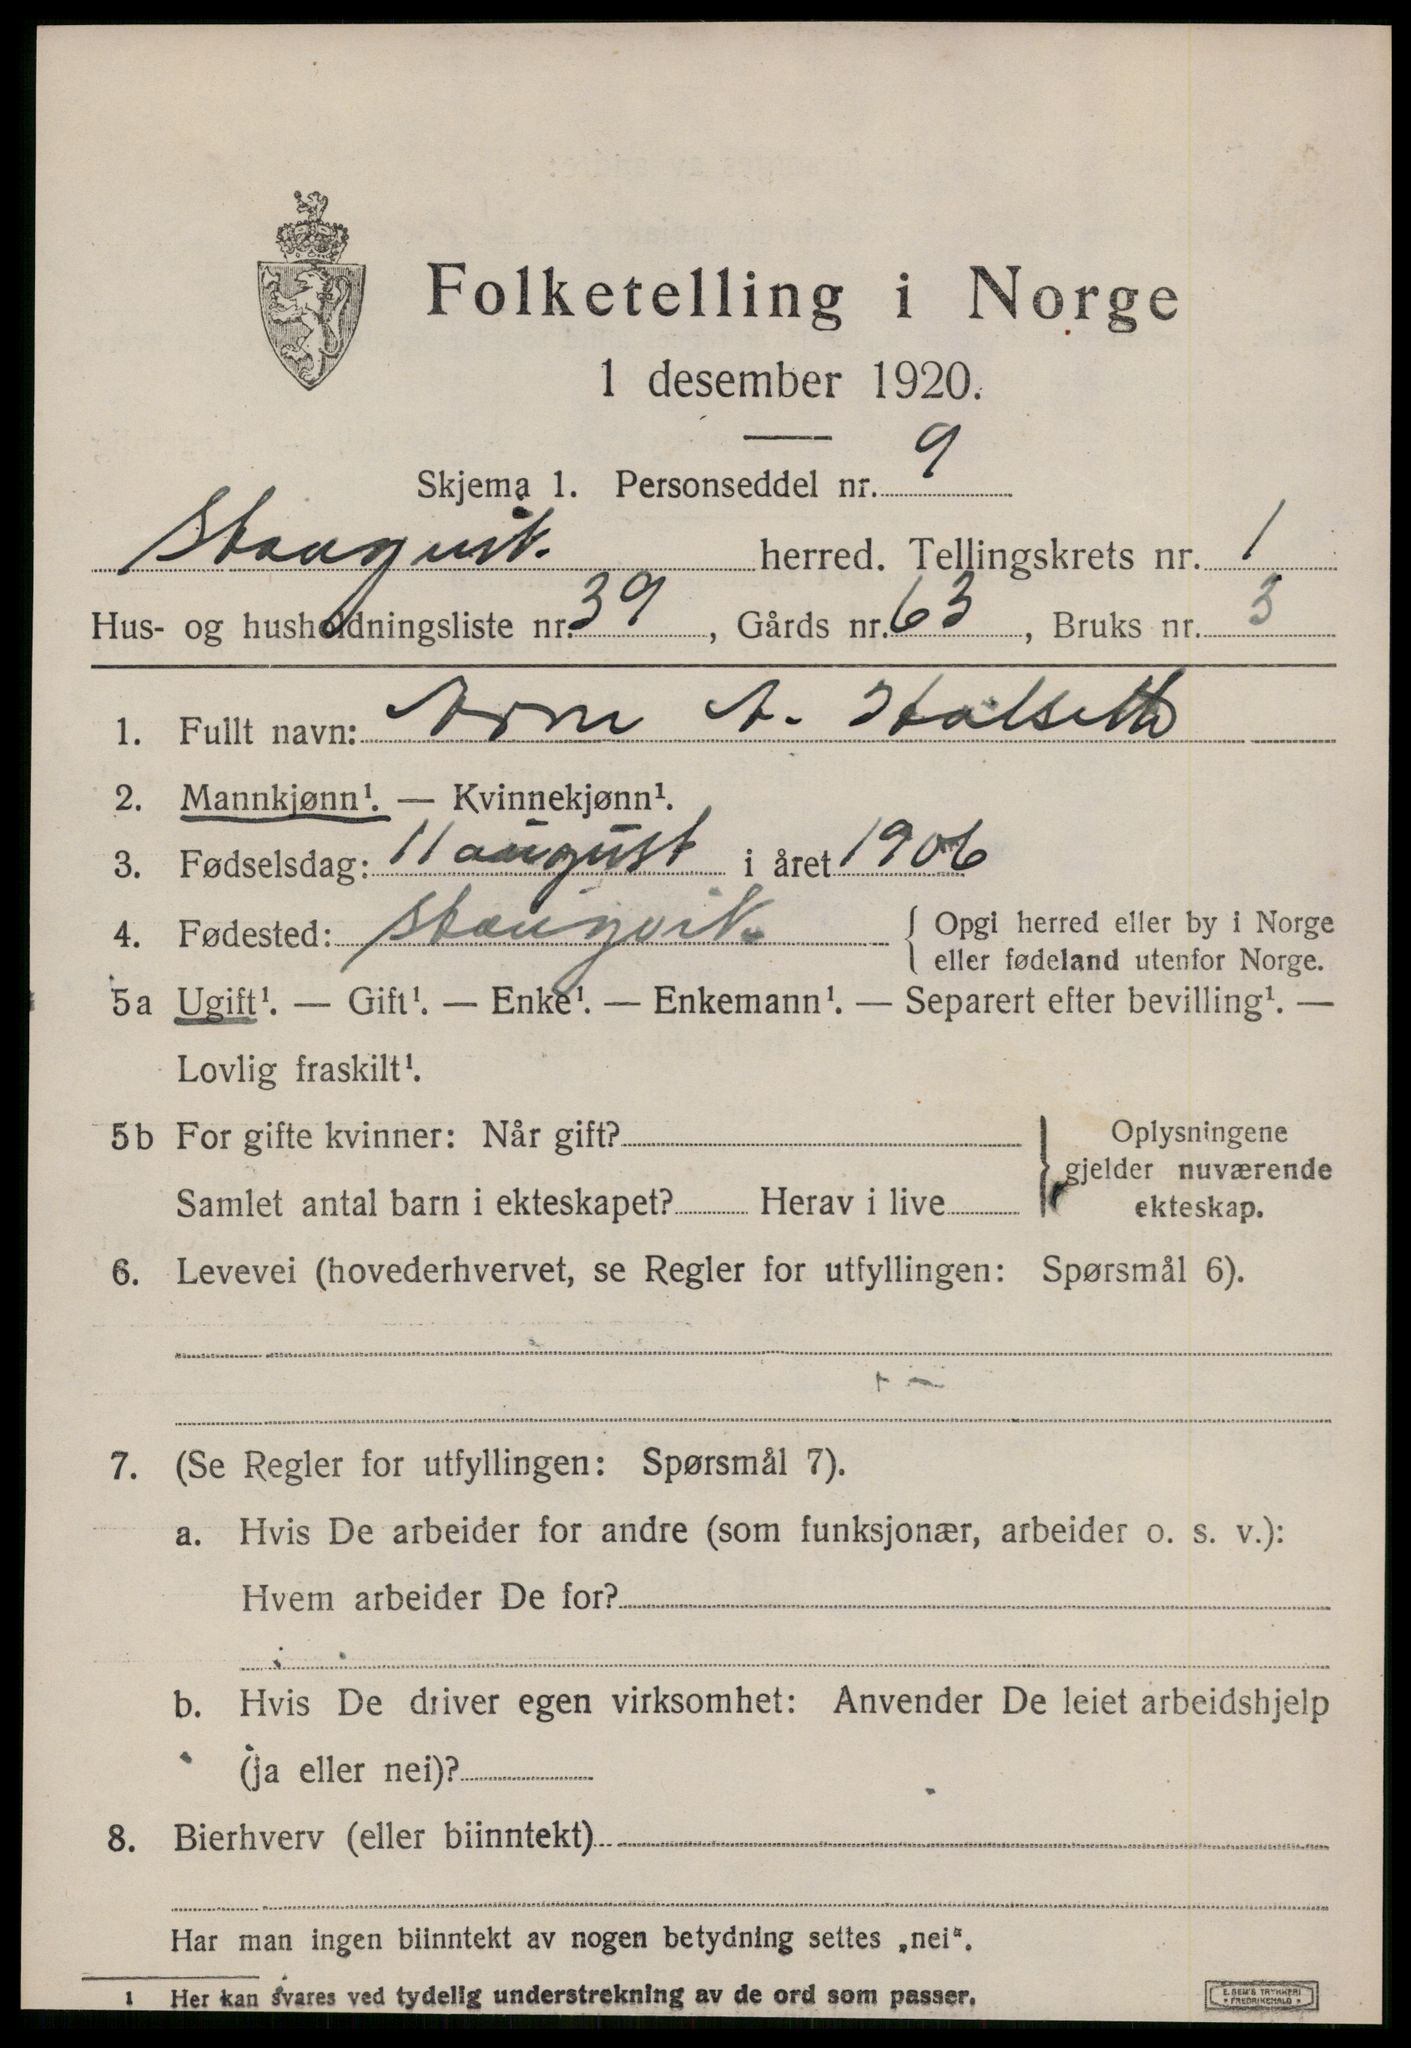 Folketelling i Norge
1 desember 1920.
Skjema 1. Personseddel nr. 9
Stangvik. herred. Tellingskrets nr. 1
Hus- og husholdningsliste nr. 39, Gårds nr. 63, Bruks nr. 3
1. Fullt navn: Arne A. Halseth
2. Mannkjønn¹. — Kvinnekjønn¹.
3. Fødselsdag: 11 august i året 1906
4. Fødested: Stangvik. { Opgi herred eller by i Norge
eller fødeland utenfor Norge.
5a Ugift¹. — Gift¹. — Enke¹. — Enkemann¹. — Separert efter bevilling¹. —
Lovlig fraskilt¹.
5b For gifte kvinner: Når gift? } Oplysningene
gjelder nuværende
Samlet antal barn i ekteskapet? Herav i live ekteskap.
6. Levevei (hovederhvervet, se Regler for utfyllingen: Spørsmål 6).
7. (Se Regler for utfyllingen: Spørsmål 7).
a. Hvis De arbeider for andre (som funksjonær, arbeider o. s. v.):
Hvem arbeider De for?
b. Hvis De driver egen virksomhet: Anvender De leiet arbeidshjelp
(ja eller nei)?
8. Bierhverv (eller biinntekt)
Har man ingen biinntekt av nogen betydning settes „nei".
1 Her kan svares ved tydelig understrekning av de ord som passer.
E. SEM'S TRYKKERI
• FREDRIKSHALD •